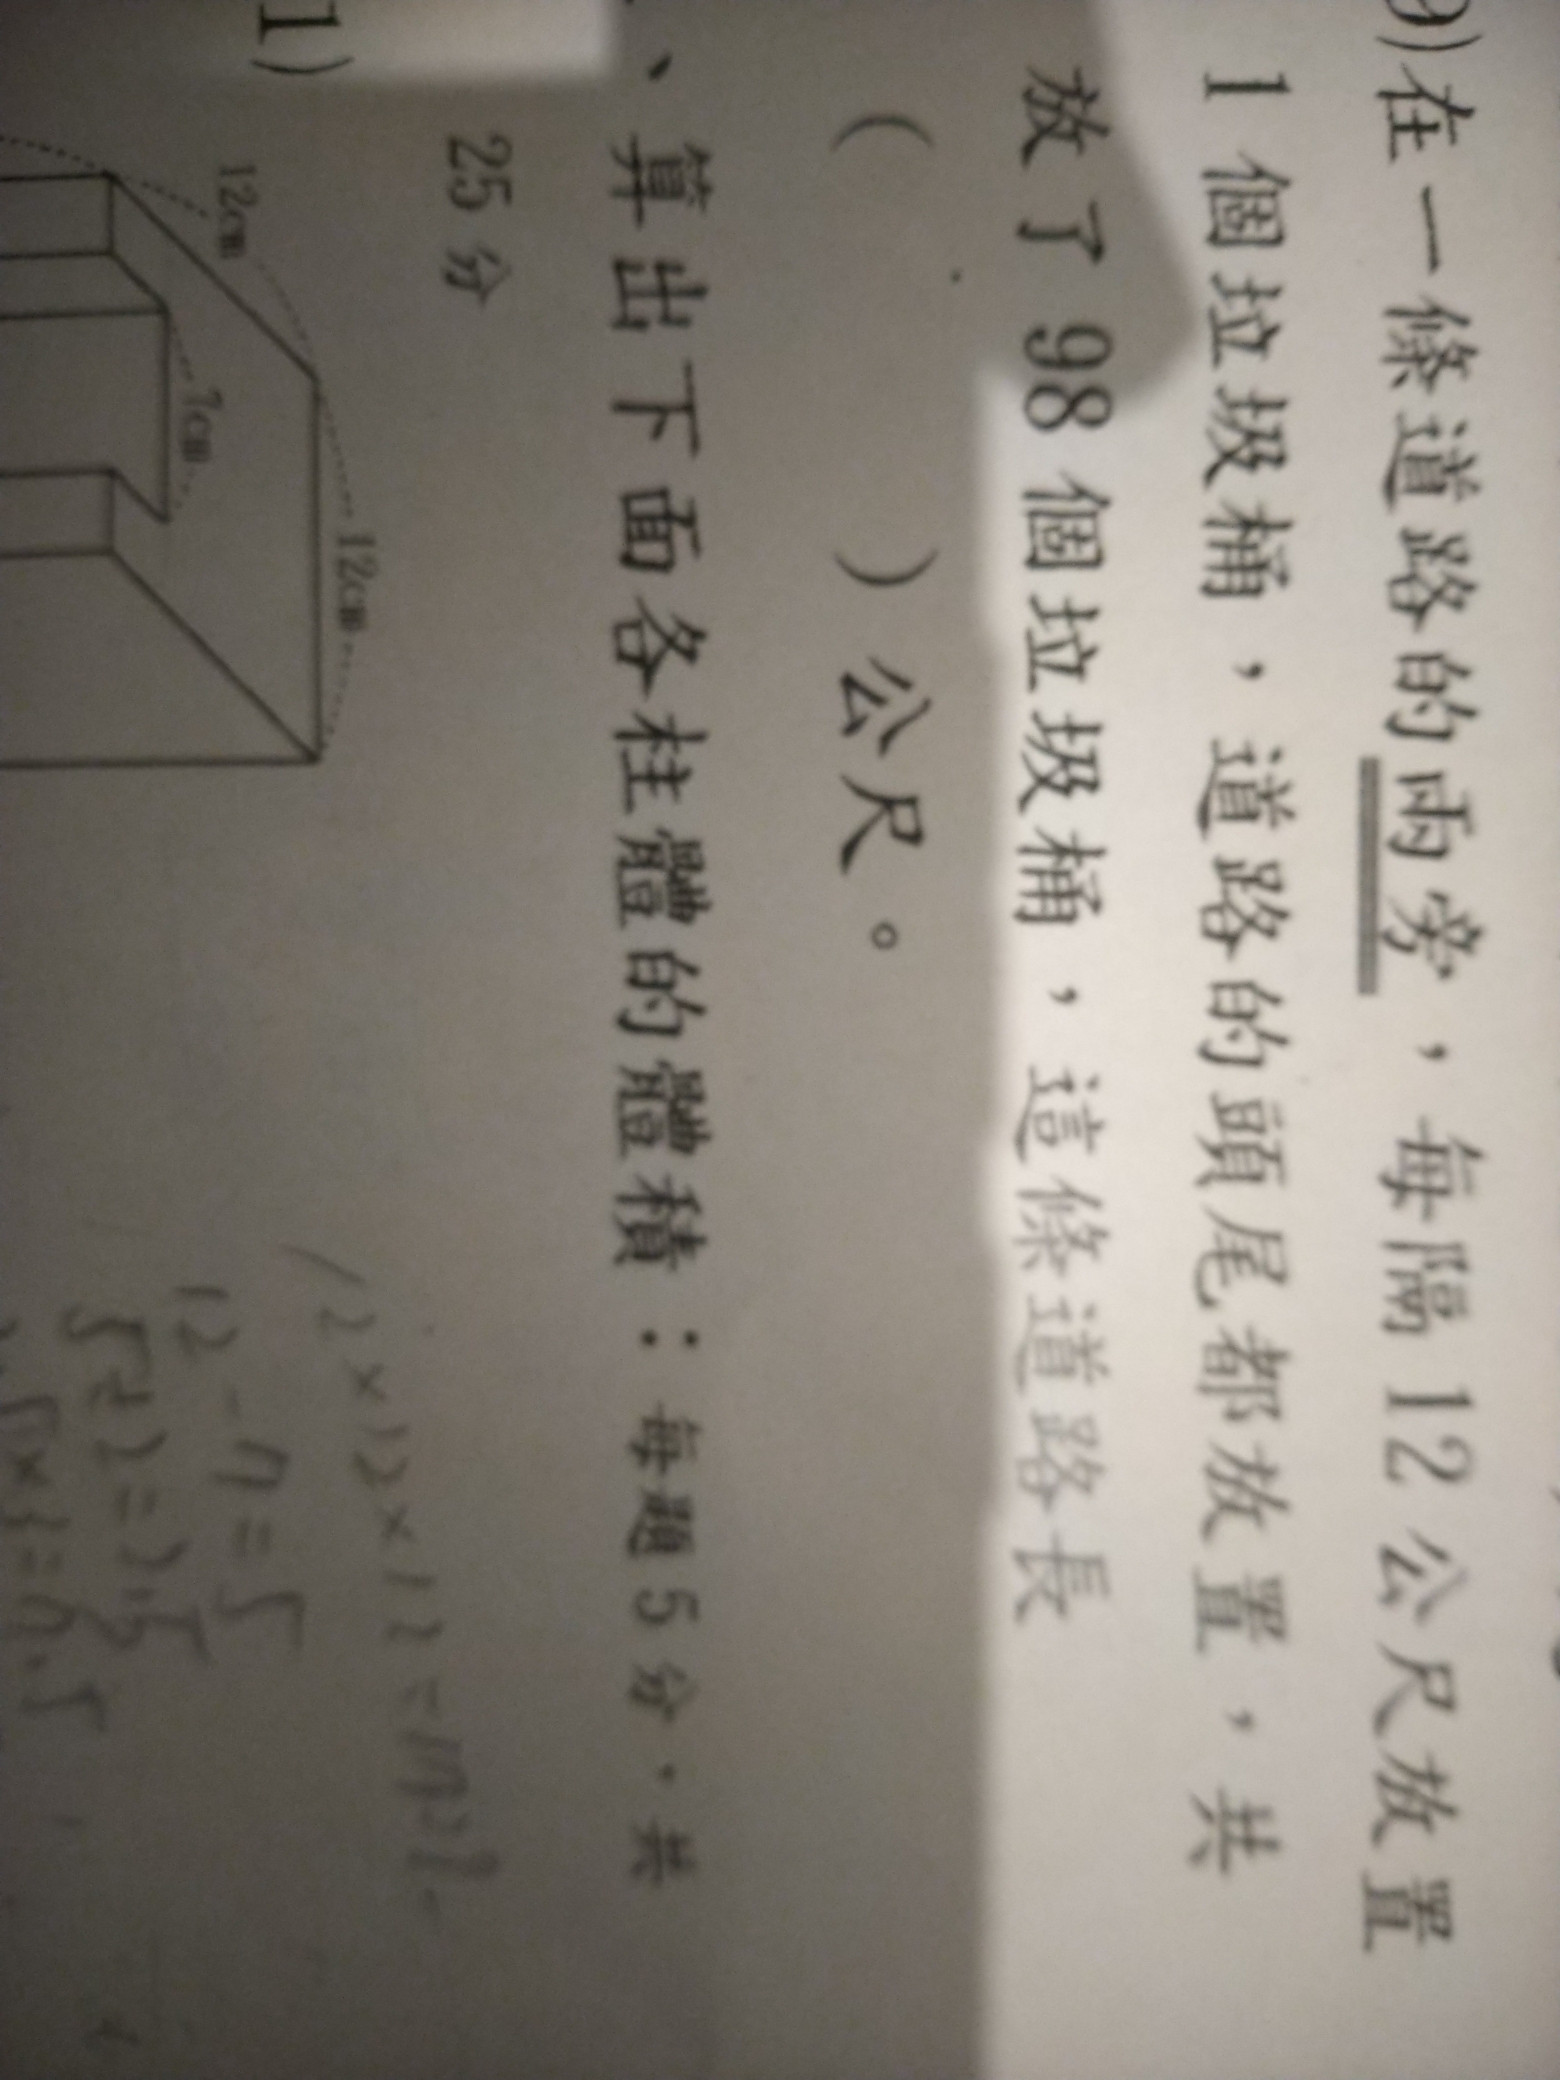 9)在一條道路的兩旁，每隔12公尺放置
1個垃圾桶，道路的頭尾都放置，共
放了98個垃圾桶，這條道路長
(　　　)公尺。
、算出下面各柱體的體積：每題5分，共
25分
1)
12cm
12cm
7cm
12×12×12=1728
12-7=5